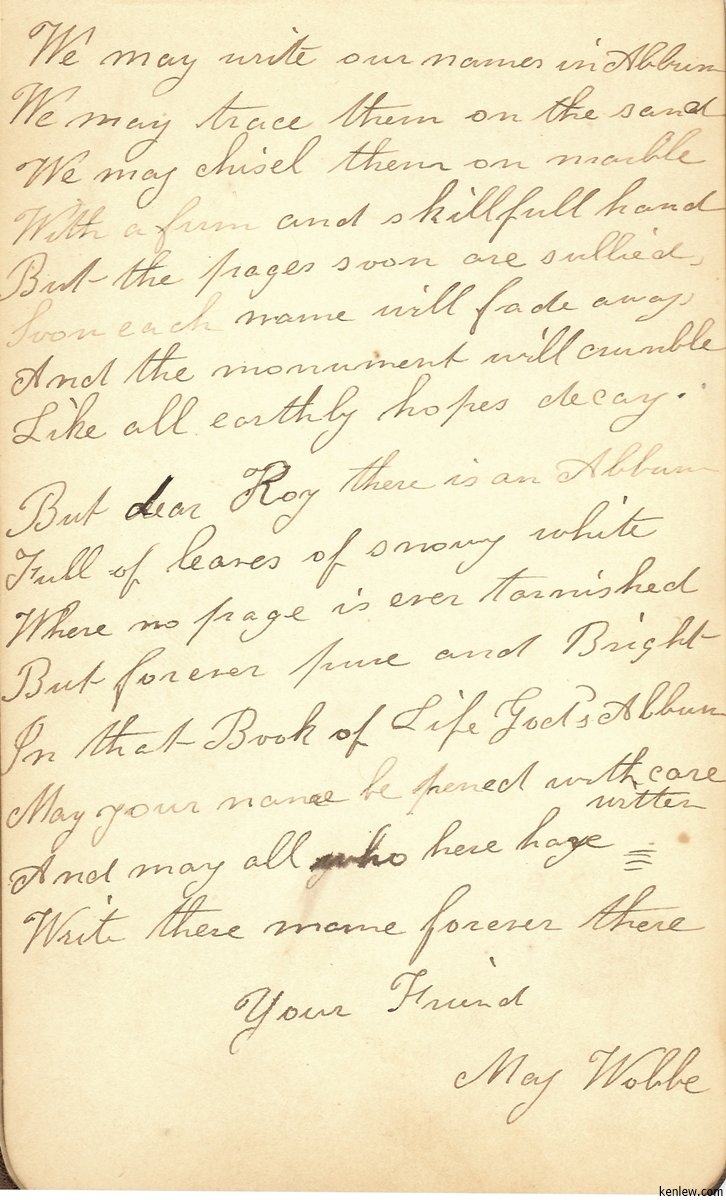 We may write our names in Abbum
We may trace them on the sand
We may chisel them on marble
With a firm and skillfull hand
But the pages soon are sullied,
Soon each name will fade away,
And the monument will crumble
Like all earthly hopes decay.
But dear Roy there is an Abbum
Full of leaves of snowy white
Where no page is ever tarnished
But forever pure and Bright
In that Book of Life God's Abbum
May your name be pened with care
And may all who here have written
Write there name forever there
Your Friend
May Wobbe
kenlew.com